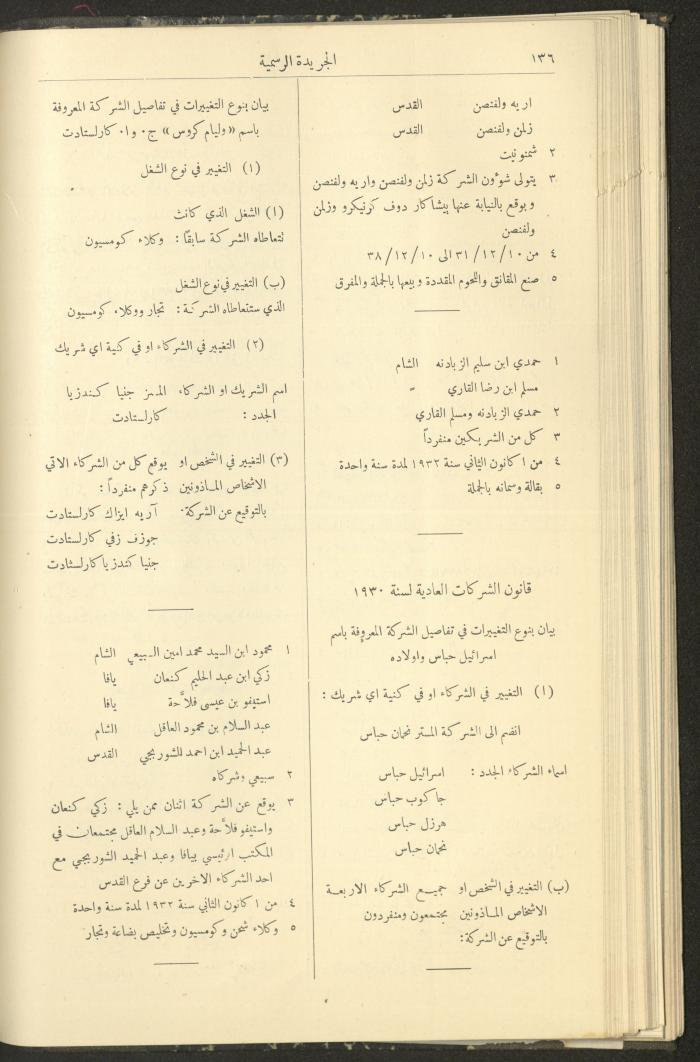 ١٣٦
الجريدة الرسمية
اريه ولفنصن القدس
زلمن ولفنصن القدس
٢ شمنونيت
٣ يتولى شؤون الشركة زلمن ولفنصن واريه ولفنصن
ويوقع بالنيابة عنها بيشاكار دوف كرنيكرو وزلمن
ولفنصن
٤ من ١٠/ ١٢/ ٣١ الى ١٠/ ١٢/ ٣٨
٥ صنع المقانق واللحوم المقددة وبيعها بالجملة والمفرق
١ حمدي ابن سليم الزبادنه الشام
مسلم ابن رضا القاري =
٢ حمدي الزبادنه ومسلم القاري
٣ كل من الشريكين منفرداً
٤ من ١ كانون الثاني سنة ١٩٣٢ لمدة سنة واحدة
٥ بقالة وسمانه بالجملة
قانون الشركات العادية لسنة ١٩٣٠
بيان بنوع التغييرات في تفاصيل الشركة المعروفة باسم
اسرائيل حباس واولاده
(١) التغيير في الشركاء او في كنية اي شريك :
انضم الى الشركة المستر نحمان حباس
اسماء الشركاء الجدد : اسرائيل حباس
جاكوب حباس
هرزل حباس
نحمان حباس
(ب) التغيير في الشخص او جميع الشركاء الاربعة
الاشخاص المأذونين مجتمعون ومنفردون
بالتوقيع عن الشركة:
بيان بنوع التغييرات في تفاصيل الشركة المعروفة
باسم «وليام كروس» ج٠ و ا٠ كارلستادت
(١) التغيير في نوع الشغل
(ا) الشغل الذي كانت
تتعاطاه الشركة سابقاً : وكلاء كومسيون
(ب) التغيير في نوع الشغل
الذي ستتعاطاه الشركة : تجار ووكلاء كومسيون
(٢) التغيير في الشركاء او في كنية اي شريك
اسم الشريك او الشركاء المسز جنيا كندزيا
الجدد : كارلستادت
(٣) التغيير في الشخص او يوقع كل من الشركاء الاتي
الاشخاص المأذونين ذكرهم منفرداً :
بالتوقيع عن الشركة٠ آريه ايزاك كارلستادت
جوزف زفي كارلستادت
جنيا كندزيا كارلستادت
١ محمود ابن السيد محمد امين السبيعي الشام
زكي ابن عبد الحليم كنعان يافا
استيفو بن عيسى فلاَّحة يافا
عبد السلام بن محمود العاقل الشام
عبد الحميد ابن احمد للشوربجي القدس
٢ سبيعي وشركاه
٣ يوقع عن الشركة اثنان ممن يلي : زكي كنعان
واستيفو فلاَّحة وعبد السلام العاقل مجتمعان في
المكتب الرئيسي بيافا وعبد الحميد الشوربجي مع
احد الشركاء الاخرين عن فرع القدس
٤ من ١ كانون الثاني سنة ١٩٣٢ لمدة سنة واحدة
٥ وكلاء شحن وكومسيون وتخليص بضاعة وتجار